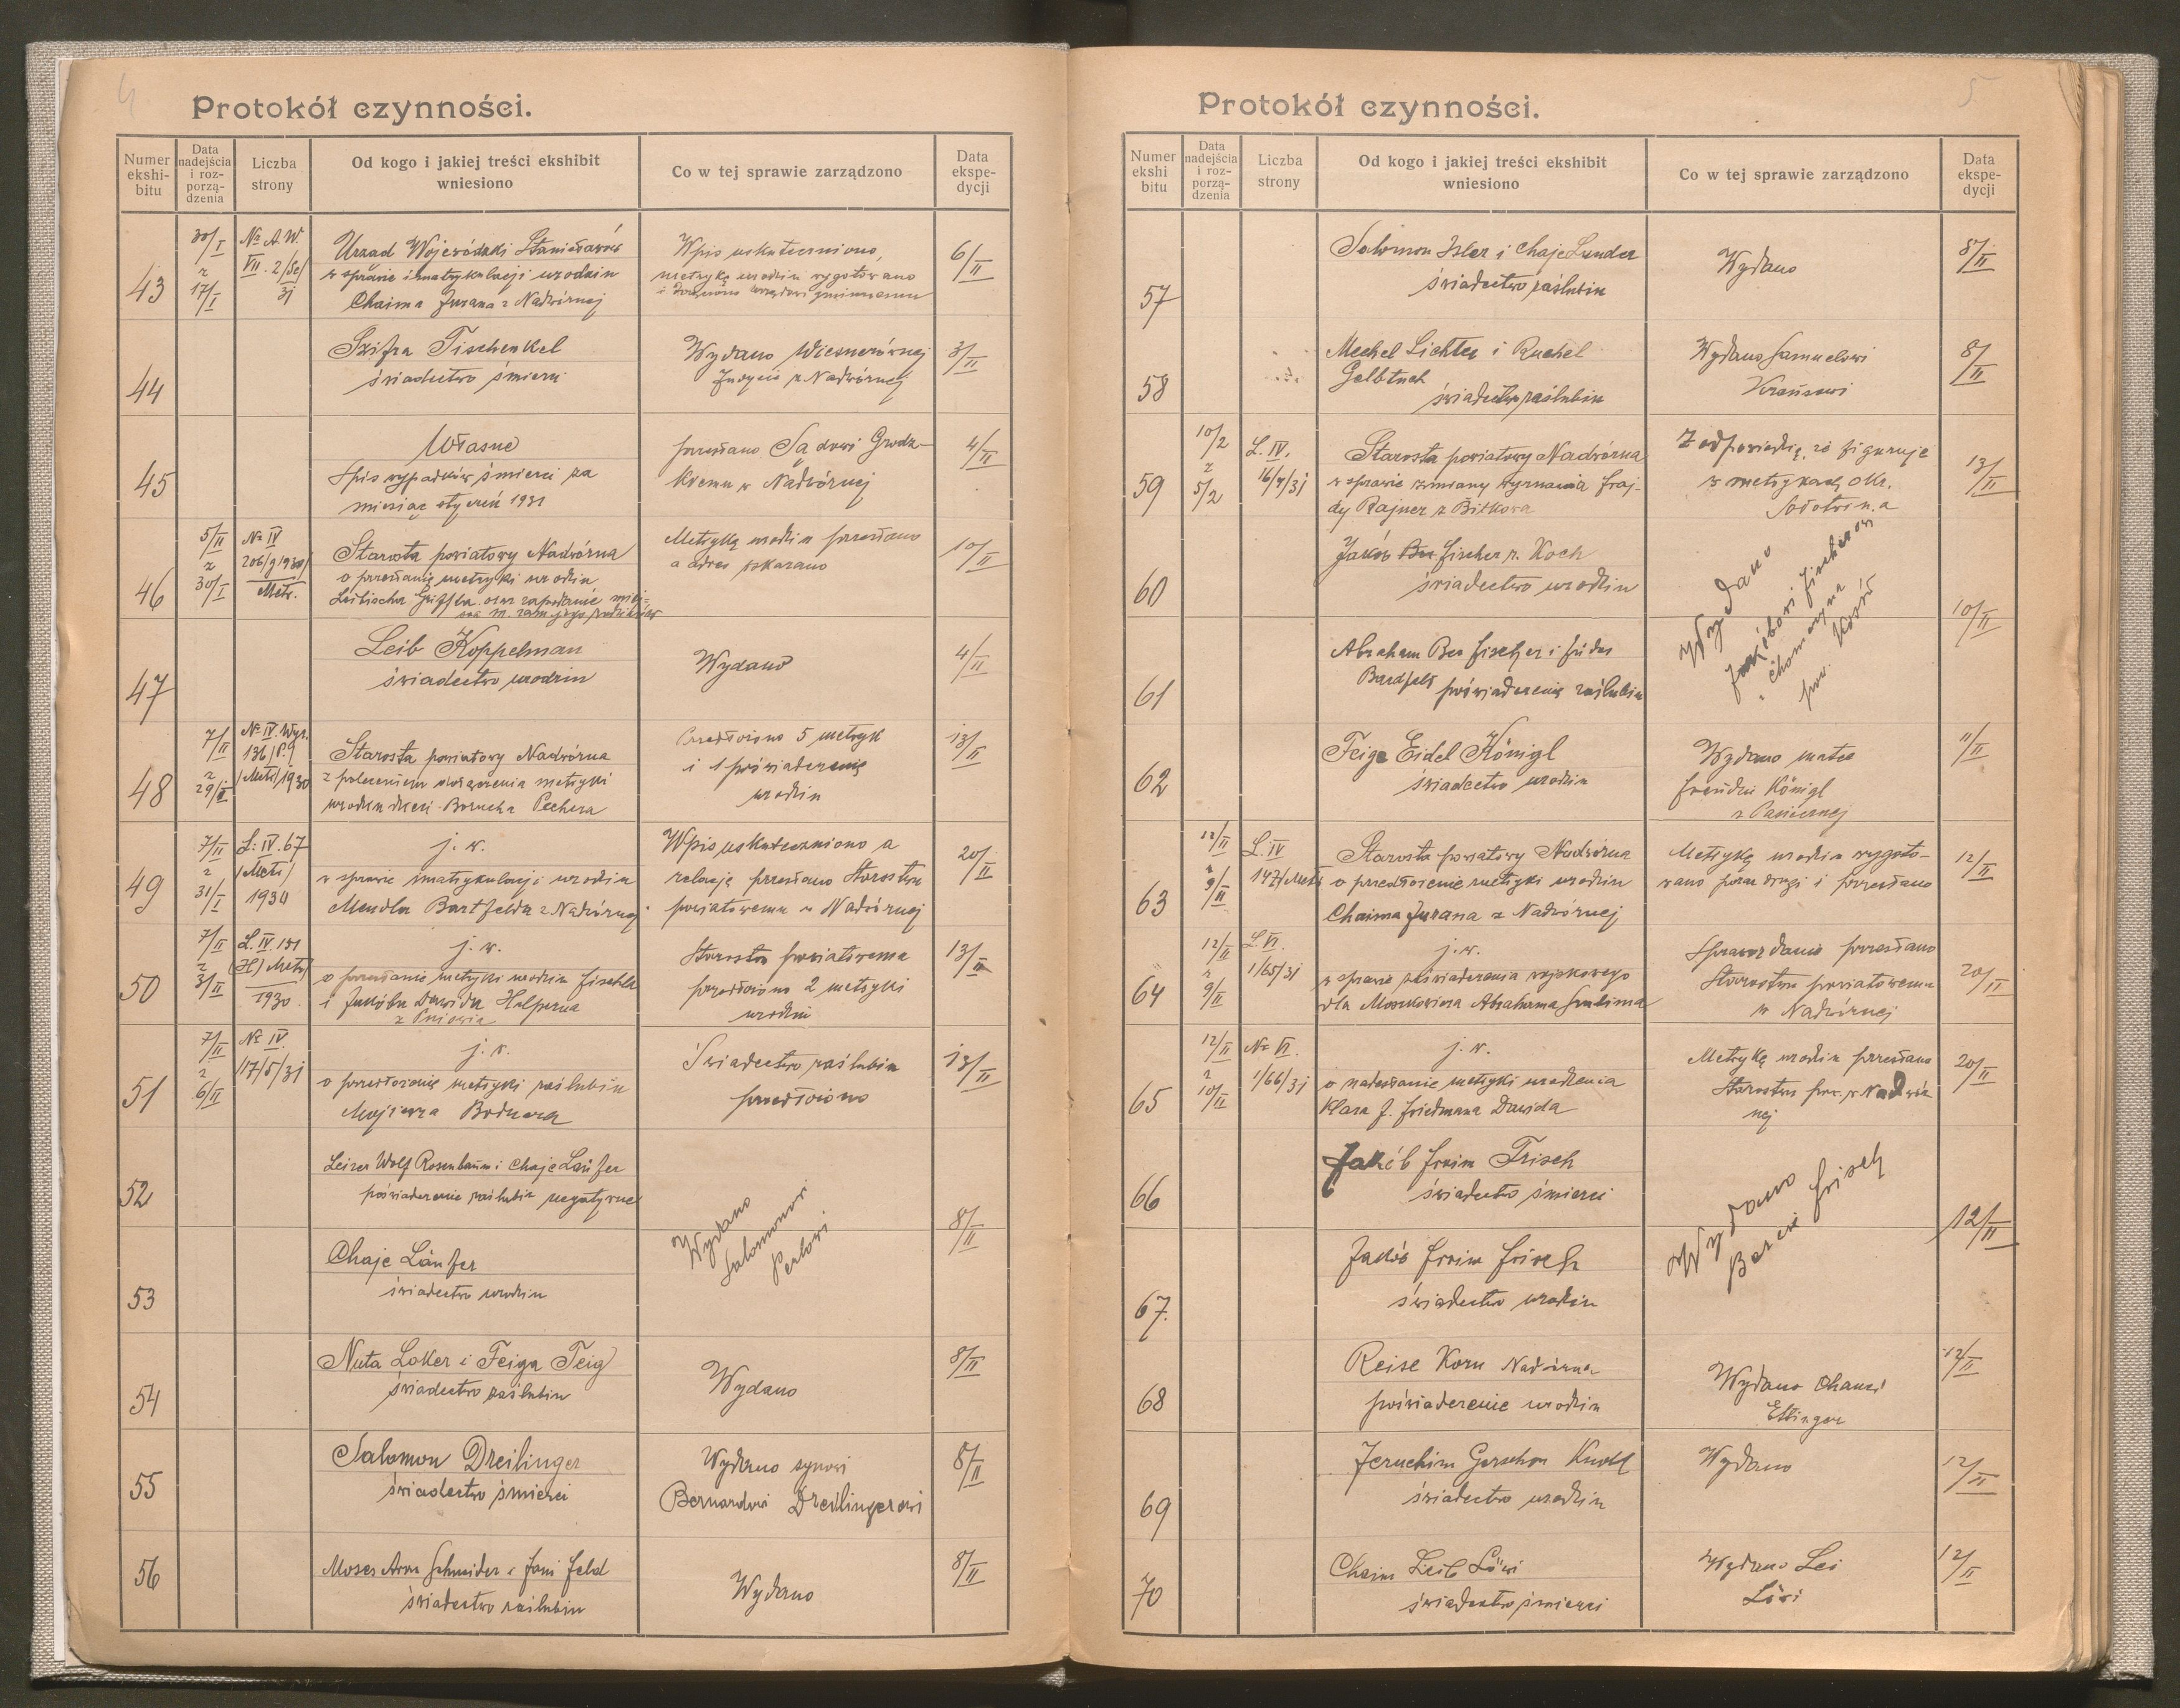 4
Protokół czynności.
Numer ekshi-bitu
Data nadejścia i roz-porzą-dzenia
Liczba strony
Od kogo i jakiej treści ekshibit wniesiono
Co w tej sprawie zarządzono
Data ekspe-dycji
43
30/I z 17/I
Nr A.W. VII. 2/Se/31
Urząd Wojewódzki Stanisławów
w sprawie imatrykulacji urodzin
Chaima Jurana z Nadwórnej
Wpis uskuteczniono,
metrykę urodzin wygotowano
i doręczono urzędowi gminnemu
6/II
44
Szifra Tischenkel
świadectwo śmierci
Wydano Wiesnerównej
z Nadwórnej
3/II
45
Własne
Spis wypadków śmierci za
miesiąc styczeń 1931
przesłano Sądowi Grodz-
kiemu w Nadwórnej
4/II
46
5/II z 30/I
Nr IV
206/9/1930/
Metr.
Starosta powiatowy Nadwórna
o przesłanie metryki urodzin
oraz zapodanie miej-
jego rodziców
Metrykę urodzin przesłano
a adres wskazano
10/II
47
Leib Koppelman
świadectwo urodzin
Wydano
4/II
48
7/II z 29/I
Nr IV. Wyz.
136/P.9
/Metr/1930
Starosta powiatowy Nadwórna
z poleceniem metryki
urodzin dzieci Borucha Pechera
Przedłożono 5 metryk
i 1 poświadczenie
urodzin
13/II
49
7/II z 31/I
L: IV. 67
/Metr/
1931
j. w.
w sprawie imatrykulacji urodzin
Mendla Bartfelda z Nadwórnej
Wpis uskuteczniono a
relację przesłano Starostwu
powiatowemu w Nadwórnej
20/II
50
7/II z 3/II
L. IV. 131
(H) Metr/
1930
j. w.
o przesłanie metryki urodzin Fischla
i Jakóba Dawida Halperna
z Pniowia
Starostwu powiatowemu
przedłożono 2 metryki
urodzin
13/II
51
7/II z 6/II
Nr IV.
117/5/31
j. w.
o przedłożenie metryki zaślubin
Mojżesza Bodnara
Świadectwo zaślubin
przedłożono
13/II
52
Leizer Wolf Rosenbaum i Chaje Läufer
poświadczenie zaślubin negatywne
Wydano
Salomonowi
Perlowi
8/II
53
Chaje Läufer
świadectwo urodzin
54
Nuta Loker i Feiga Teig
świadectwo zaślubin
Wydano
8/II
55
Salomon Dreilinger
świadectwo śmierci
Wydano synowi
Bernardowi Dreilingerowi
8/II
56
Moses Aron Schneider i Fani Feld
świadectwo zaślubin
Wydano
8/II
5
Protokół czynności.
Numer ekshi bitu
Data nadejścia i roz-porzą-dzenia
Liczba strony
Od kogo i jakiej treści ekshibit wniesiono
Co w tej sprawie zarządzono
Data ekspe-dycji
57
Salomon Isler i Chaje Sunder
świadectwo zaślubin
Wydano
8/II
58
Mechel Lichter i Ruchel
Gelbtuch
świadectwo zaślubin
Wydano Samuelowi
8/II
59
10/2 z 5/2
L. IV.
16/4/31
Starosta powiatowy Nadwórna
w sprawie zmiany wyznania Fraj-
dy Rajner z Bitkowa
Z odpowiedzią, że figuruje
w metrykach okr.
Sołotwina
13/II
60
Jakób Fischer r. Koch
świadectwo urodzin
Wydano
Jakóbowi Fischerowi
pow. Kosów
10/II
61
Abraham Ber Fischer i Frides
Bardfeld poświadczenie zaślubin
62
Feige Eidel Königl
świadectwo urodzin
Wydano matce
Königl
11/II
63
12/II z 9/II
L. IV
147/Metr
Starosta powiatowy Nadwórna
o przedłożenie metryki urodzin
Chaima Jurana z Nadwórnej
Metrykę urodzin wygoto-
wano poraz drugi i przesłano
12/II
64
12/II z 9/II
L. VI.
1/65/31
j. w.
w sprawie poświadczenia wojskowego
dla Moszkowicza Abrahama
Sprawozdanie przesłano
Starostwu powiatowemu
w Nadwórnej
20/II
65
12/II z 10/II
Nr VI.
1/66/31
j. w.
o nadesłanie metryki urodzenia
Klara f. Friedmana Dawida
Metrykę urodzin przesłano
Starostwu pow. w Nadwór
nej
20/II
66
Jakób Froim Frisch
świadectwo śmierci
Wydano
Frisch
12/II
67.
Jakób Froim Frisch
świadectwo urodzin
68
Reise Korn Nadwórna
poświadczenie urodzin
Wydano Chanci
Ettinger
12/II
69
Jeruchim Gerschon Knoll
świadectwo urodzin
Wydano
12/II
70
Chaim Leib Löwi
świadectwo śmierci
Wydano Lei
Löwi
12/II